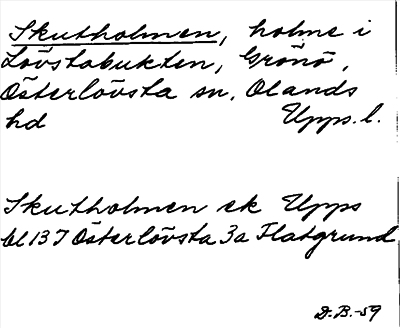 Skutholmen, holme i
Lövstabukten, Gronö,
Österlövsta sn. Olands
hd Upps. l.
Skutholmen ek Upps
bl 137 Österlövsta 3a Flatgrund
D.B.-59